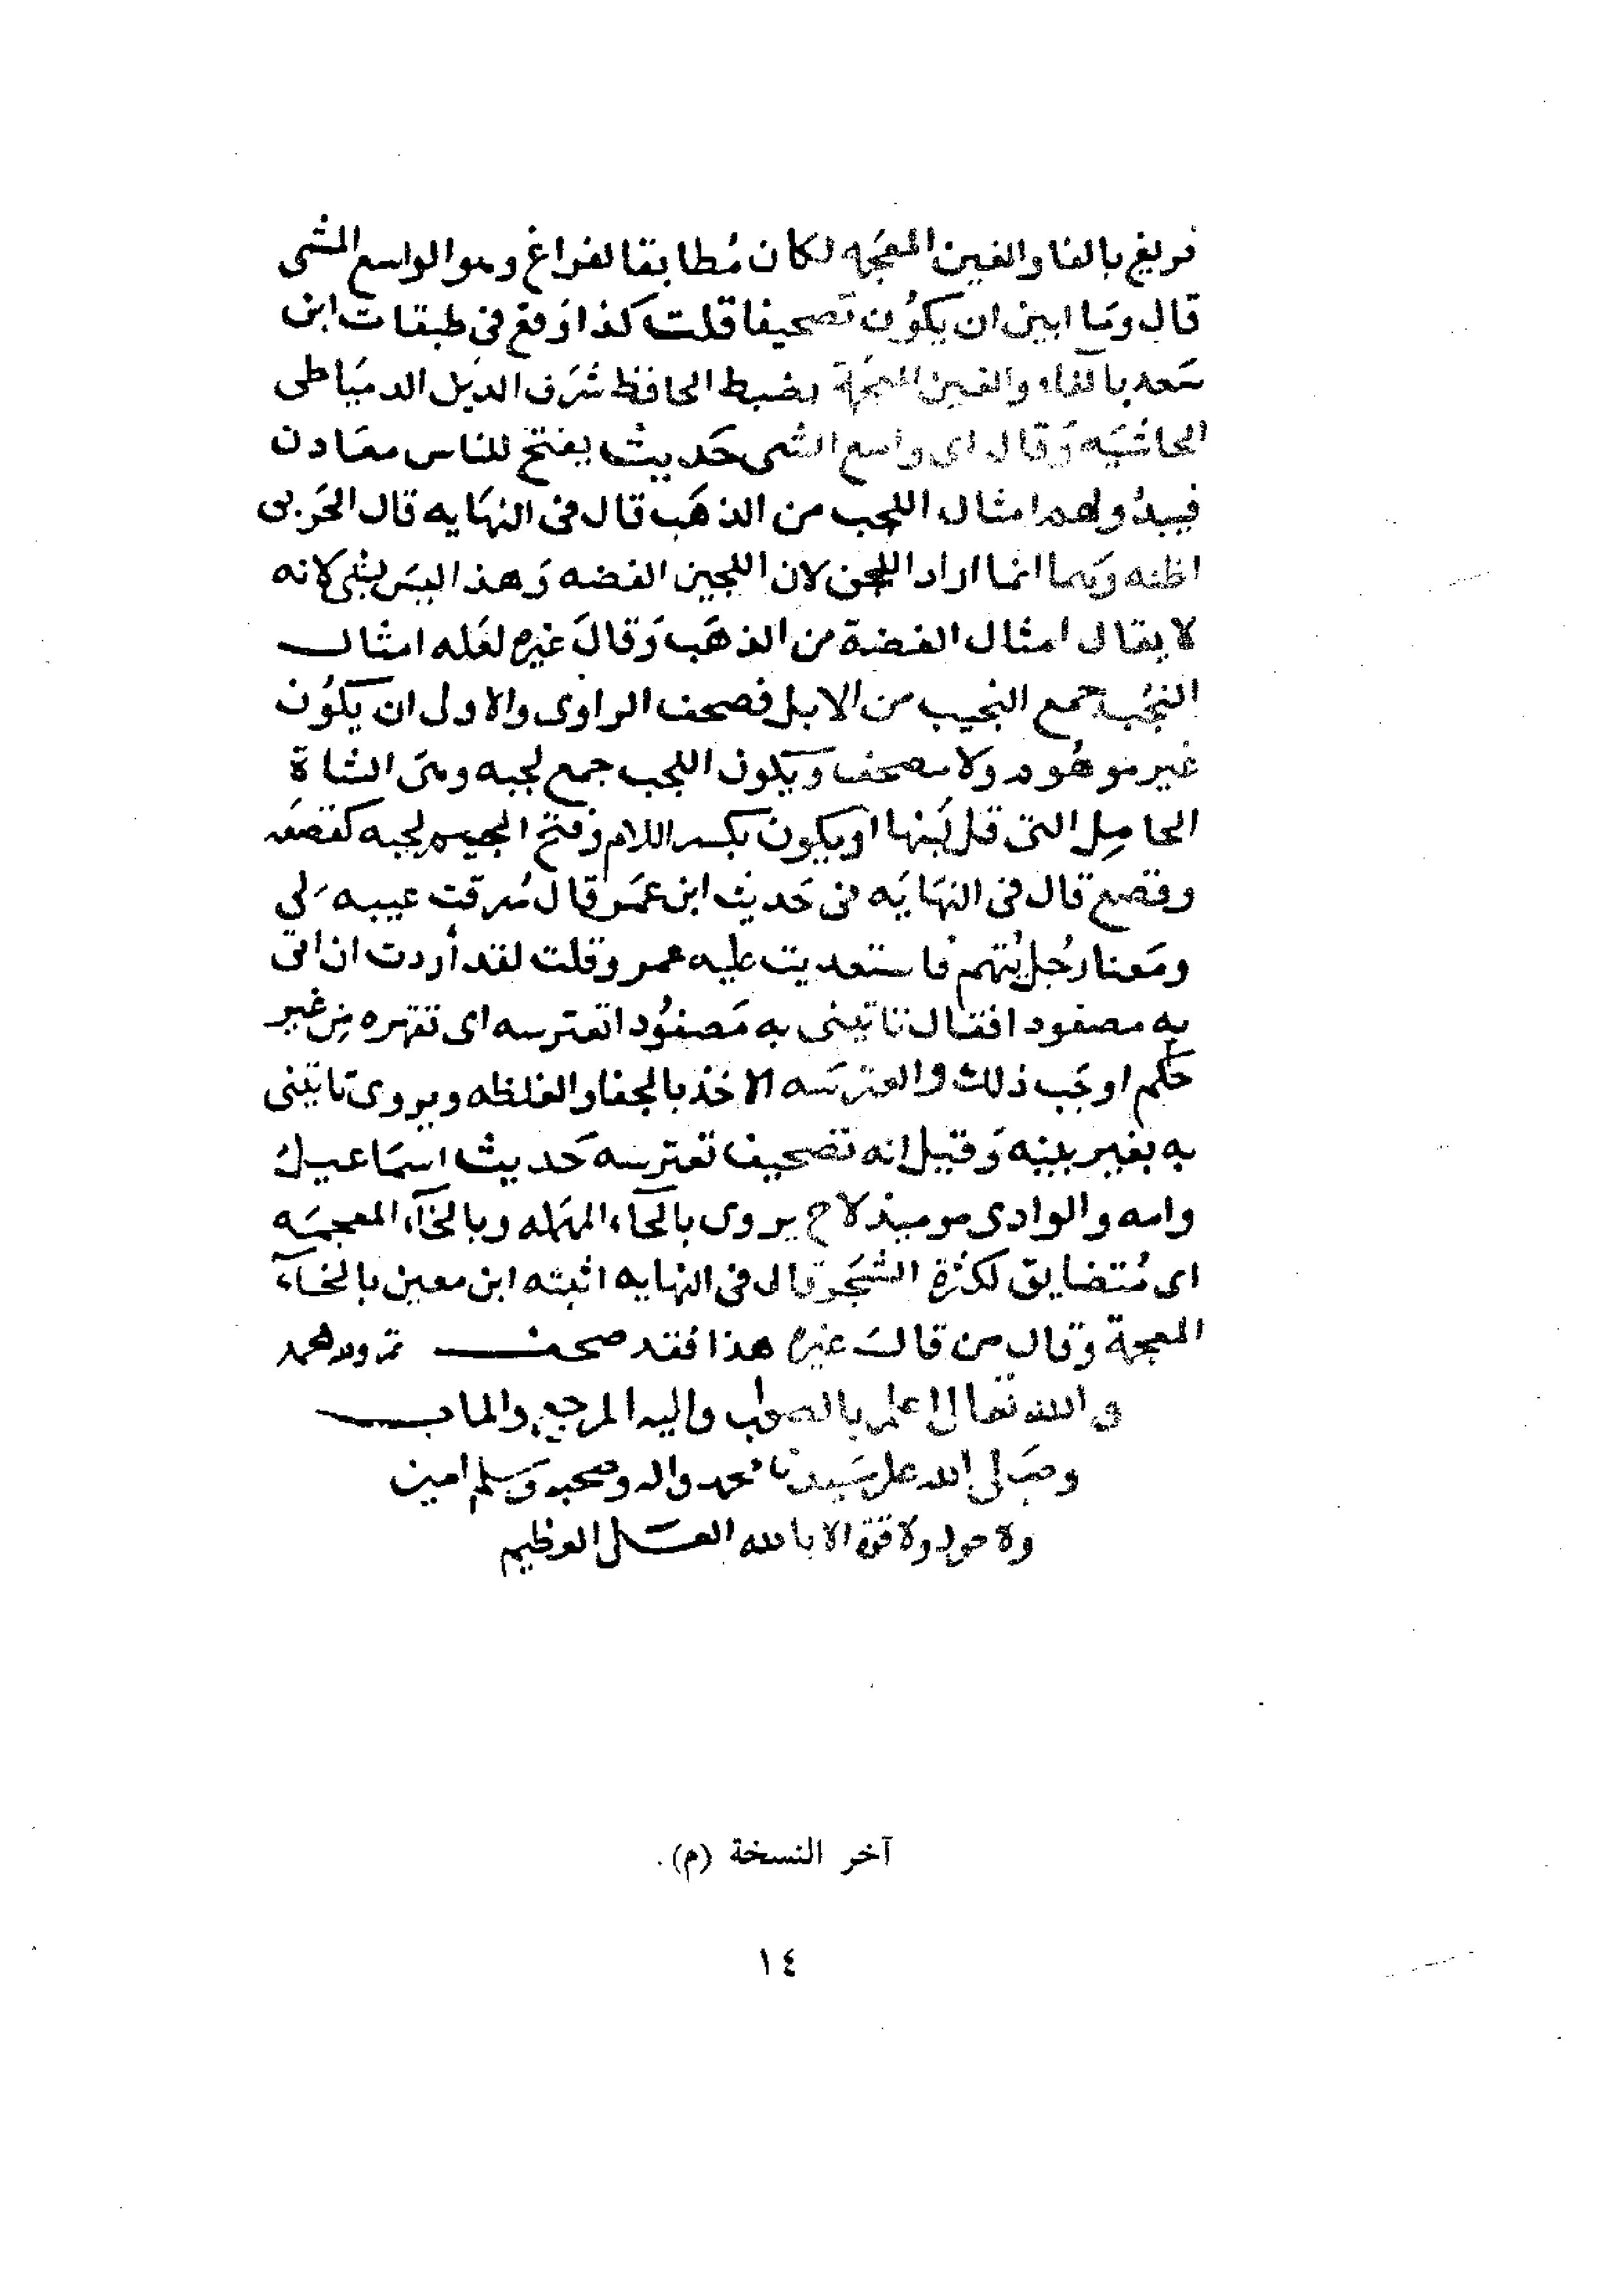 فريغ بالفا والغين المعجمه لكان مُطابقا لفراغ وهو الواسع المشى
قال وما ابين ان يكون تصحيفا قلت كذا وقع فى طبقات ابن
سعد بالفاء والغين المعجمة بضبط الحافظ شرف الدين الدمياطى
الحاشيه وقال اى واسع المشى حديث يفتح للناس معادن
فيبدولهم امثال اللجب من الذهب قال فى النهايه قال الحربى
اظنه وهما انما اراد اللجن لان اللجين الفضه وهذا ليس بشى لانه
لا يقال امثال الفضة من الذهب وقال غيره لعله امثال
النجب جمع النجيب من الابل فصحف الراوى والاولى ان يكون
غير موهوم ولا مصحف ويكون اللجب جمع لجبه وهى الشاة
الحامل التى قل لبنها او يكون بكسر اللام وفتح الجيم لجبه كقصعه
وقصع قال فى النهايه فى حديث ابن عمر قال سرقت عيبه لي
ومعنا رجل يتهم فاستعديت عليه عمر وقلت لقد أردت ان اتى
به مصفودا فقال تاتينى به مصفودا تعترسه اى تقهره من غير
حكم اوجب ذلك والعترسه الاخذ بالجفا والغلظه ويروى تاتينى
به بغير بينه وقيل انه تصحيف تعترسه حديث اسماعيل
وامه والوادى يوميذ لاح يروى بالحاء المهمله وبالخاء المعجمه
اى مُتضايق لكثرة الشجر قال فى النهايه اثبته ابن معين بالخاء
المعجمة وقال من قال غيره هذا فقد صحف تم ولله الحمد
والله تعالى اعلم بالصواب واليه المرجع والماب
وصلى الله على سيدنا محمد واله وصحبه وسلم امين
ولا حول ولا قوة الا بالله العلى العظيم
آخر النسخة (م).
١٤